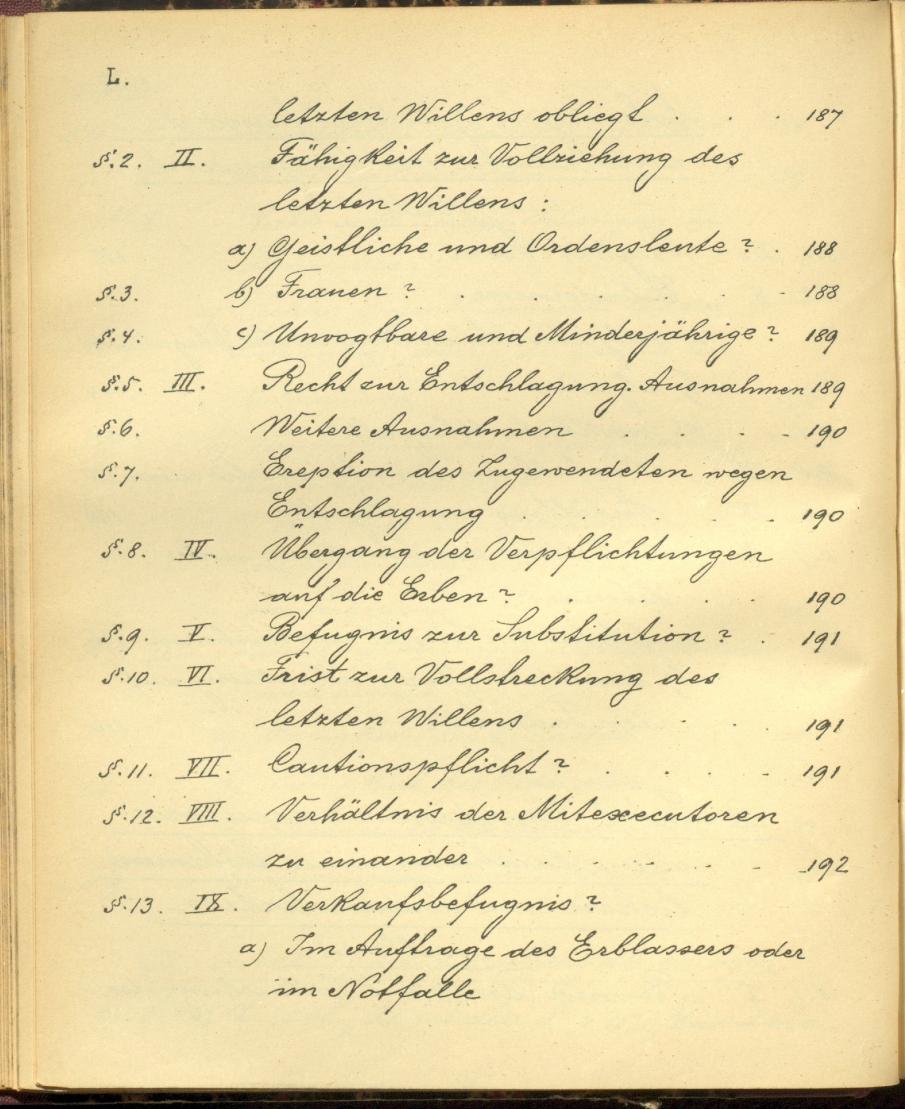 L.
letzten Willens obliegt . . . 187
§.2. II. Fähigkeit zur Vollziehung des
letzten Willens :
a) Geistliche und Ordensleute ? . 188
§.3. b) Frauen ? . . . . . . 188
§.4. c) Unvogtbare und Minderjährige ? 189
§.5. III. Recht zur Entschlagung. Ausnahmen 189
§.6. Weitere Ausnahmen . . . . 190
§.7. Ereption des Zugewendeten wegen
Entschlagung . . . . . 190
§.8. IV. Übergang der Verpflichtungen
auf die Erben ? . . . . 190
§.9. V. Befugnis zur Substitution ? . 191
§.10. VI. Frist zur Vollstreckung des
letzten Willens . . . . 191
§.11. VII. Cautionspflicht ? . . . . 191
§.12. VIII. Verhältnis der Mitexecutoren
zu einander . . . . . . 192
§.13. IX. Verkaufsbefugnis ?
a) Im Auftrage des Erblassers oder
im Notfalle